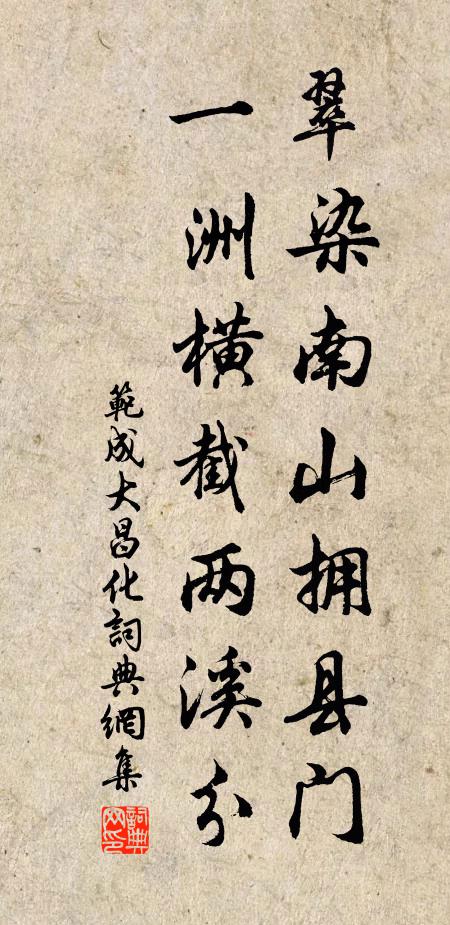 翠染南山拥县门
一洲横截两溪分
範成大昌化詞典網集
詞典网印